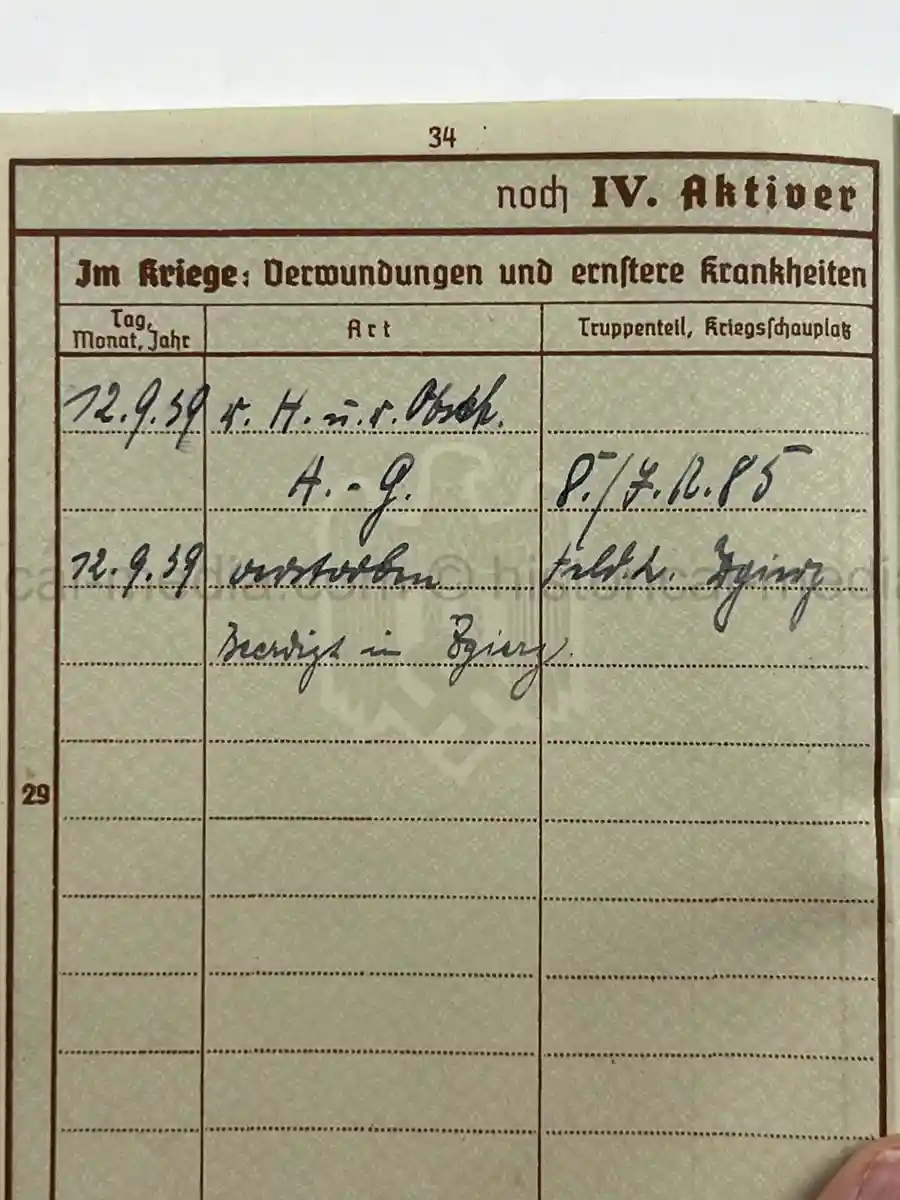 34
noch IV. Aktiver
Im Kriege: Verwundungen und ernstere Krankheiten
Tag, Monat, Jahr
Art
Truppenteil, Kriegsschauplatz
12.9.39 r. H. u. r. Obsch.
A.-G. 8./I.R.85
12.9.39 verstorben Feld.L. Zgierz
Beerdigt in Zgierz.
29